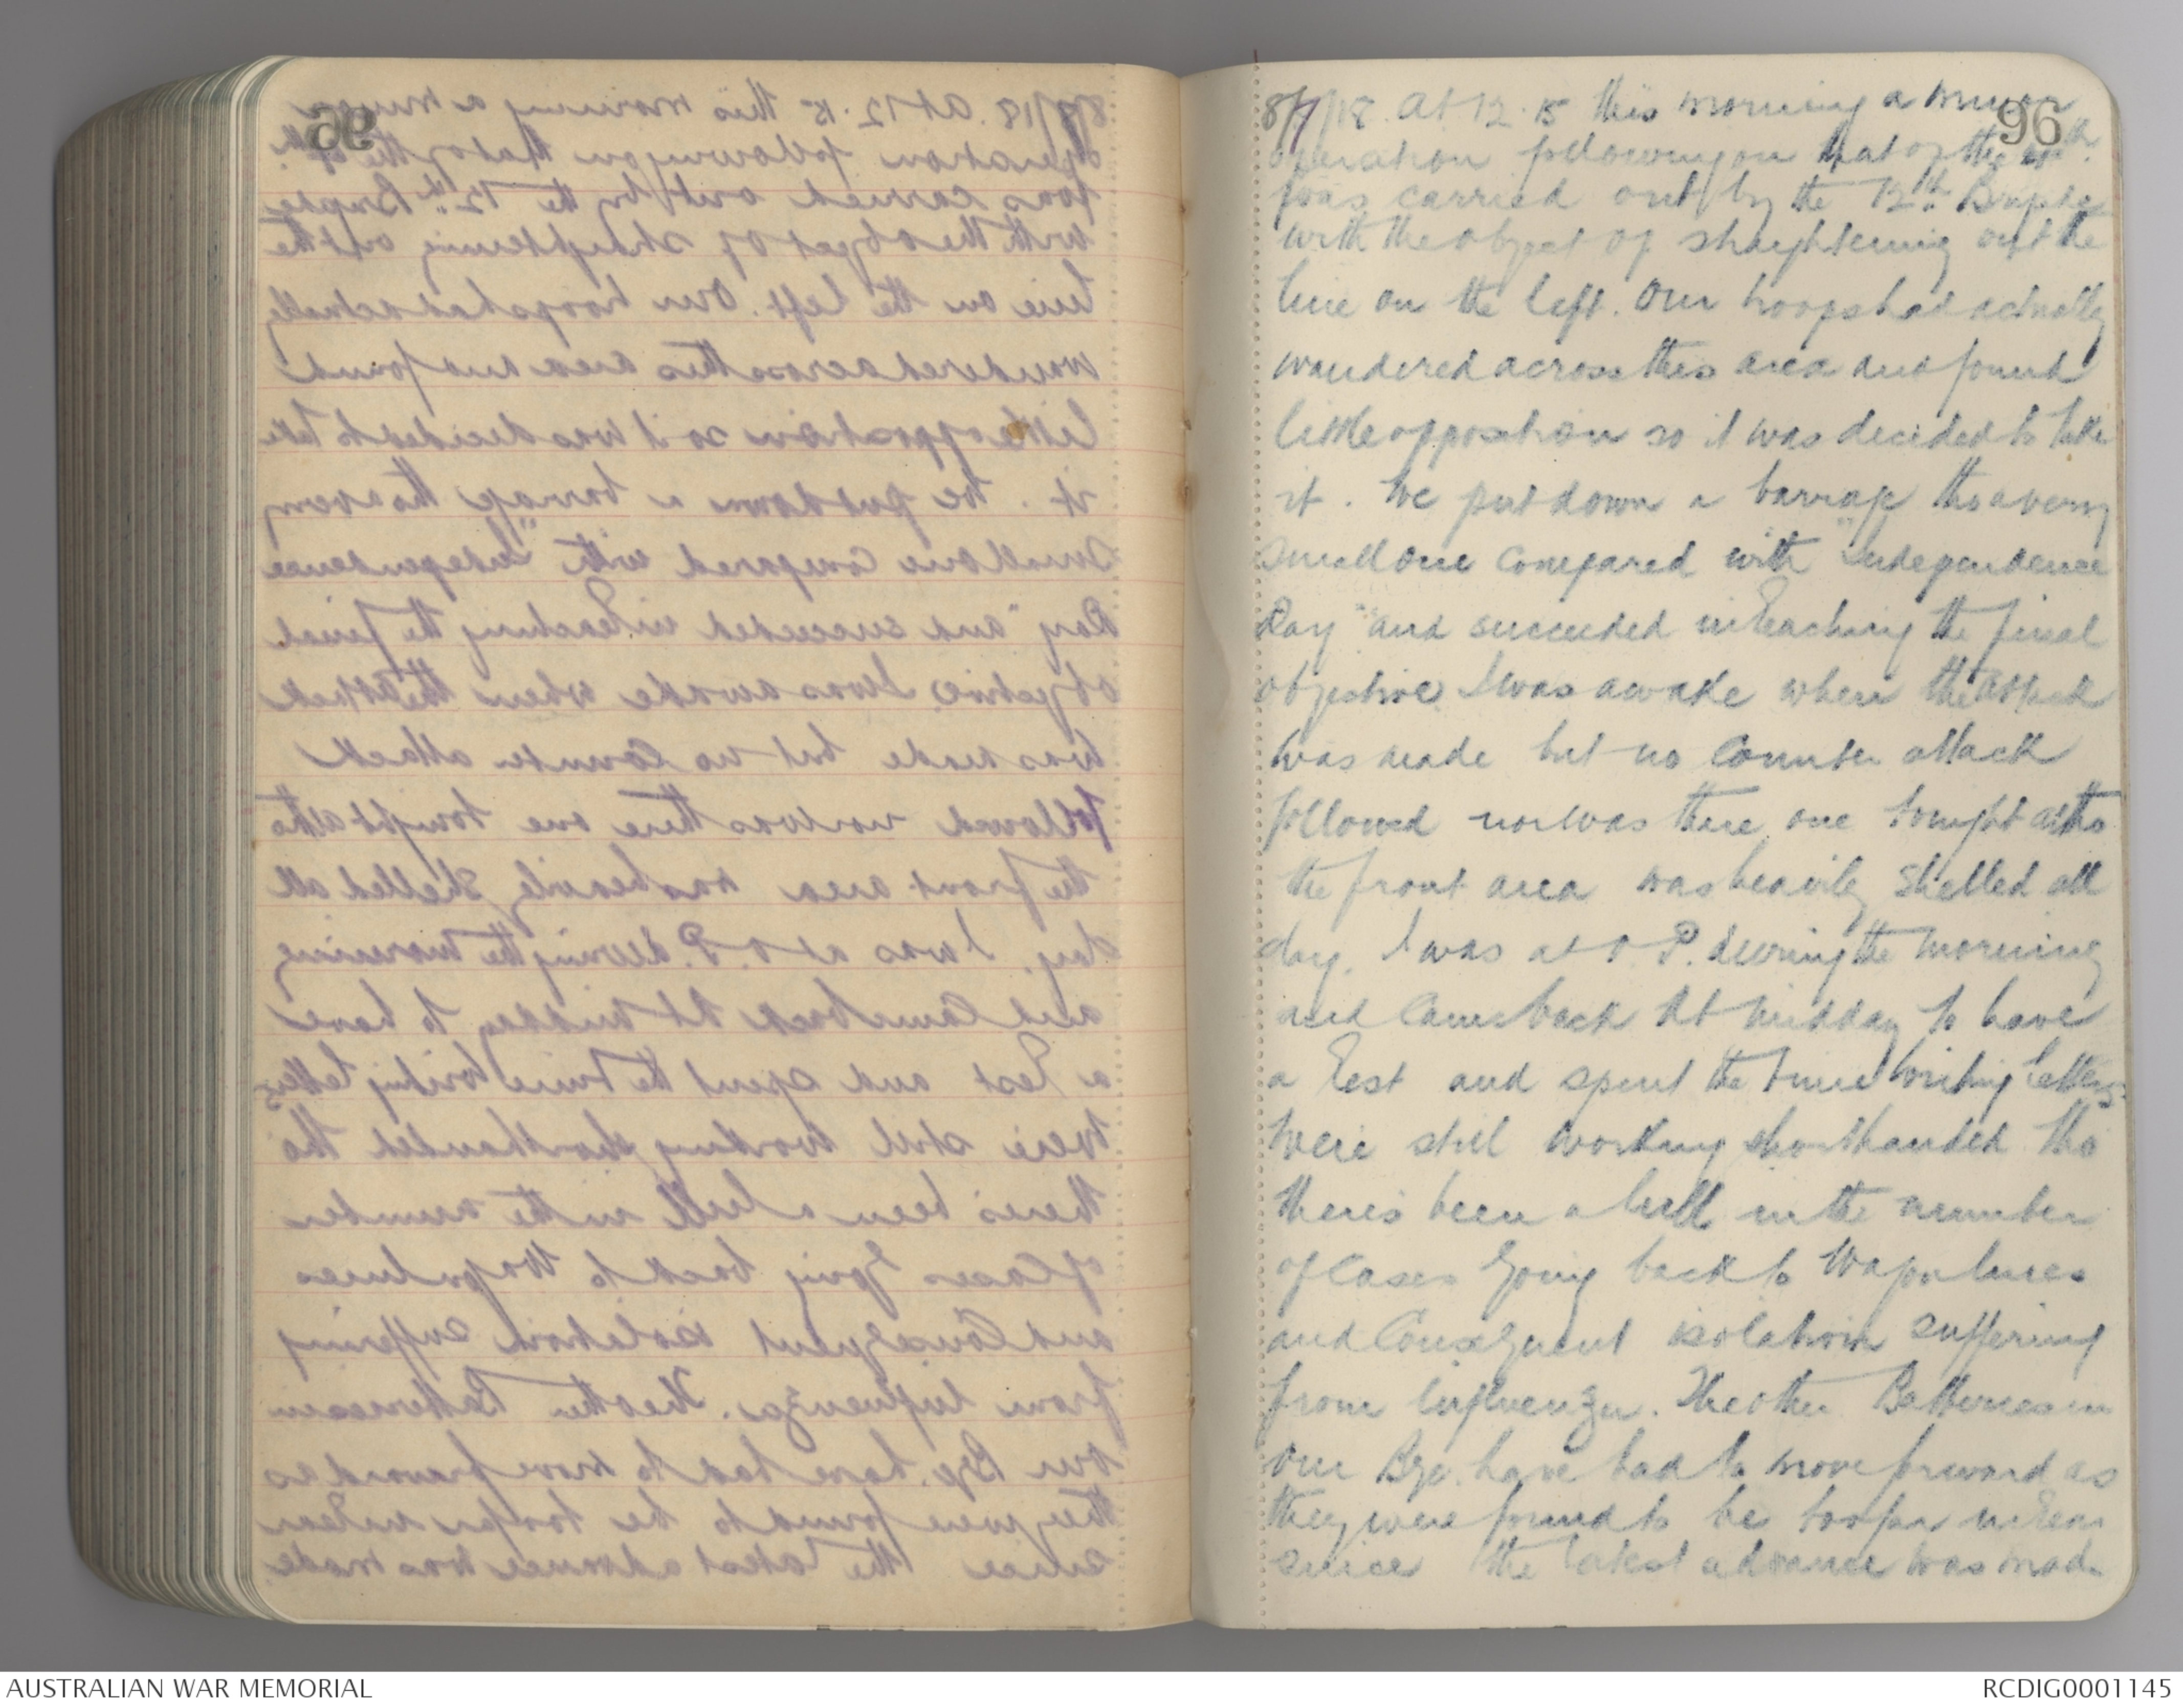 96
8/7/18. At 12.15 this morning a minor
operation following on that of the 4th.
was carried out by the 12th Brigade
with the object of straightening out the
line on the left. Our troops had actually
wandered across this area and found
little opposition so it was decided to take
it. We put down a barrage tho a very
small one compared with "Independence
Day" and succeeded in reaching the final
objective. I was awake when the attack
was made but no Counter attack
followed nor was there one tonight altho
the front area was heavily shelled all
day. I was at O.P. during the morning
and Came back At midday to have
a Rest and spent the time writing letters.
We're still working shorthanded tho
there's been a lull in the number
of Cases Going back to Wagon lines
and Consequent isolation suffering
from Influenza. The other Batteries in
our Bge. have had to move forward as
they were found to be too far in Rear
since the latest advance was made
AUSTRALIAN WAR MEMORIAL
RCDIG0001145